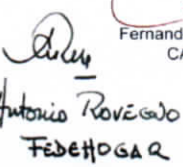 Fernand
CA
Antonio Rovegno
FEDEHOGAR